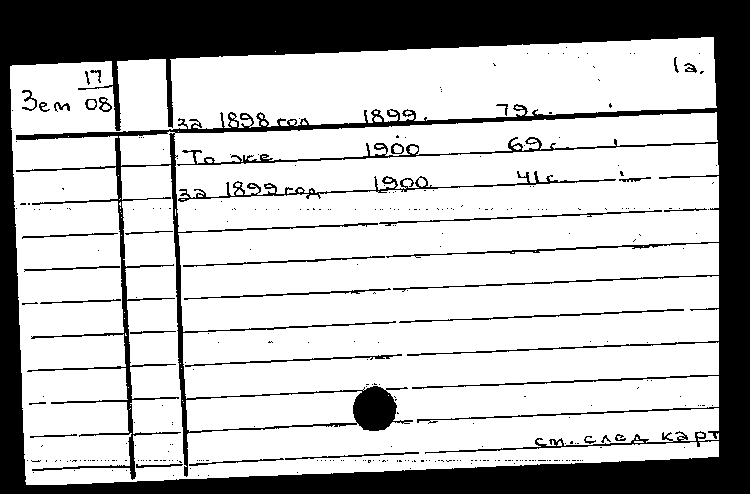 1а.
17
Зем 08
за 1898 год 1899. 79 с.
То же 1900 69 с.
за 1899 год 1900. 41 с.
см. след. карт